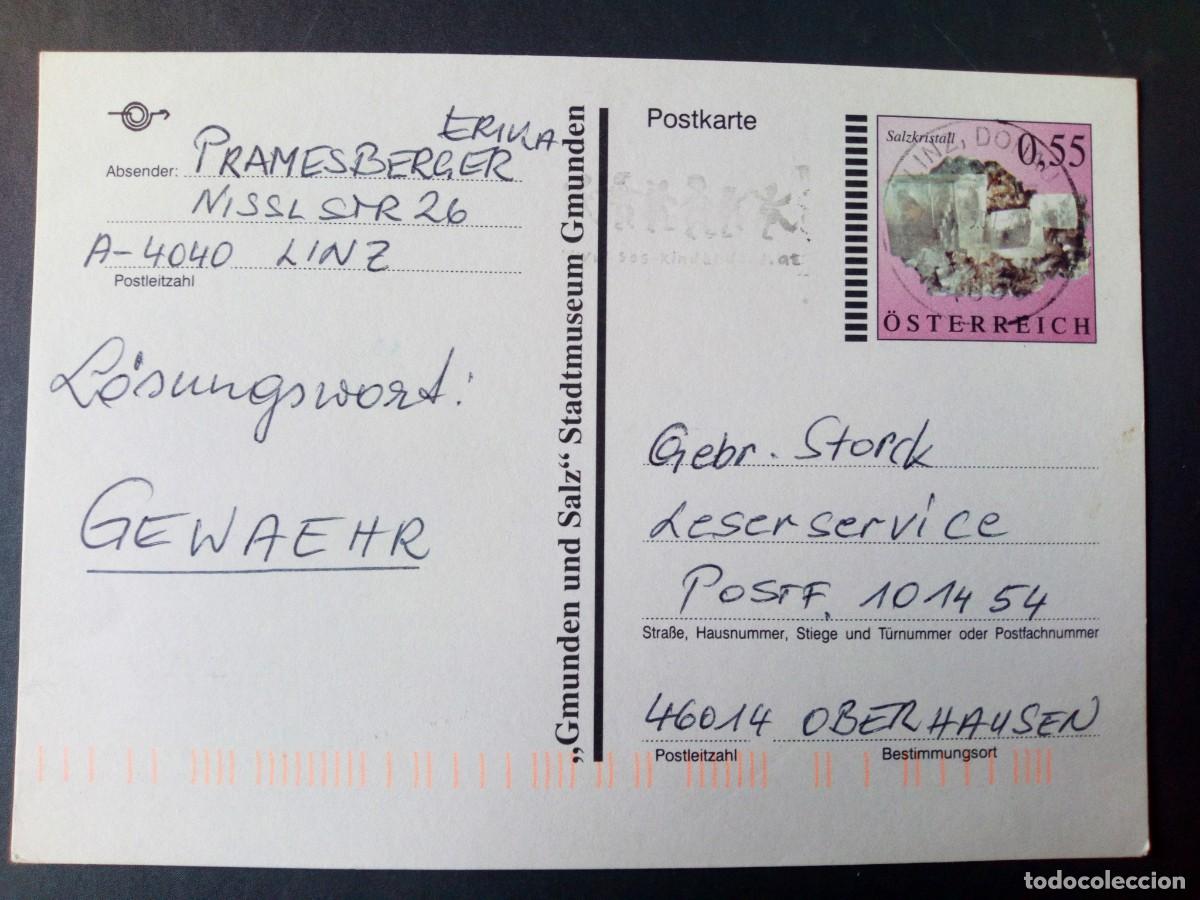 ERIKA
Absender: PRAMESBERGER
NISSLSTR 26
A-4040 LINZ
Postleitzahl
Lösungswort:
GEWAEHR
„Gmunden und Salz“ Stadtmuseum Gmunden
Postkarte
Salzkristall 0,55
LINZ, DO
ÖSTERREICH
sos-kinderdorf.at
Gebr. Storck
Leserservice
POSTF. 101454
Straße, Hausnummer, Stiege und Türnummer oder Postfachnummer
46014 OBERHAUSEN
Postleitzahl Bestimmungsort
todocoleccion